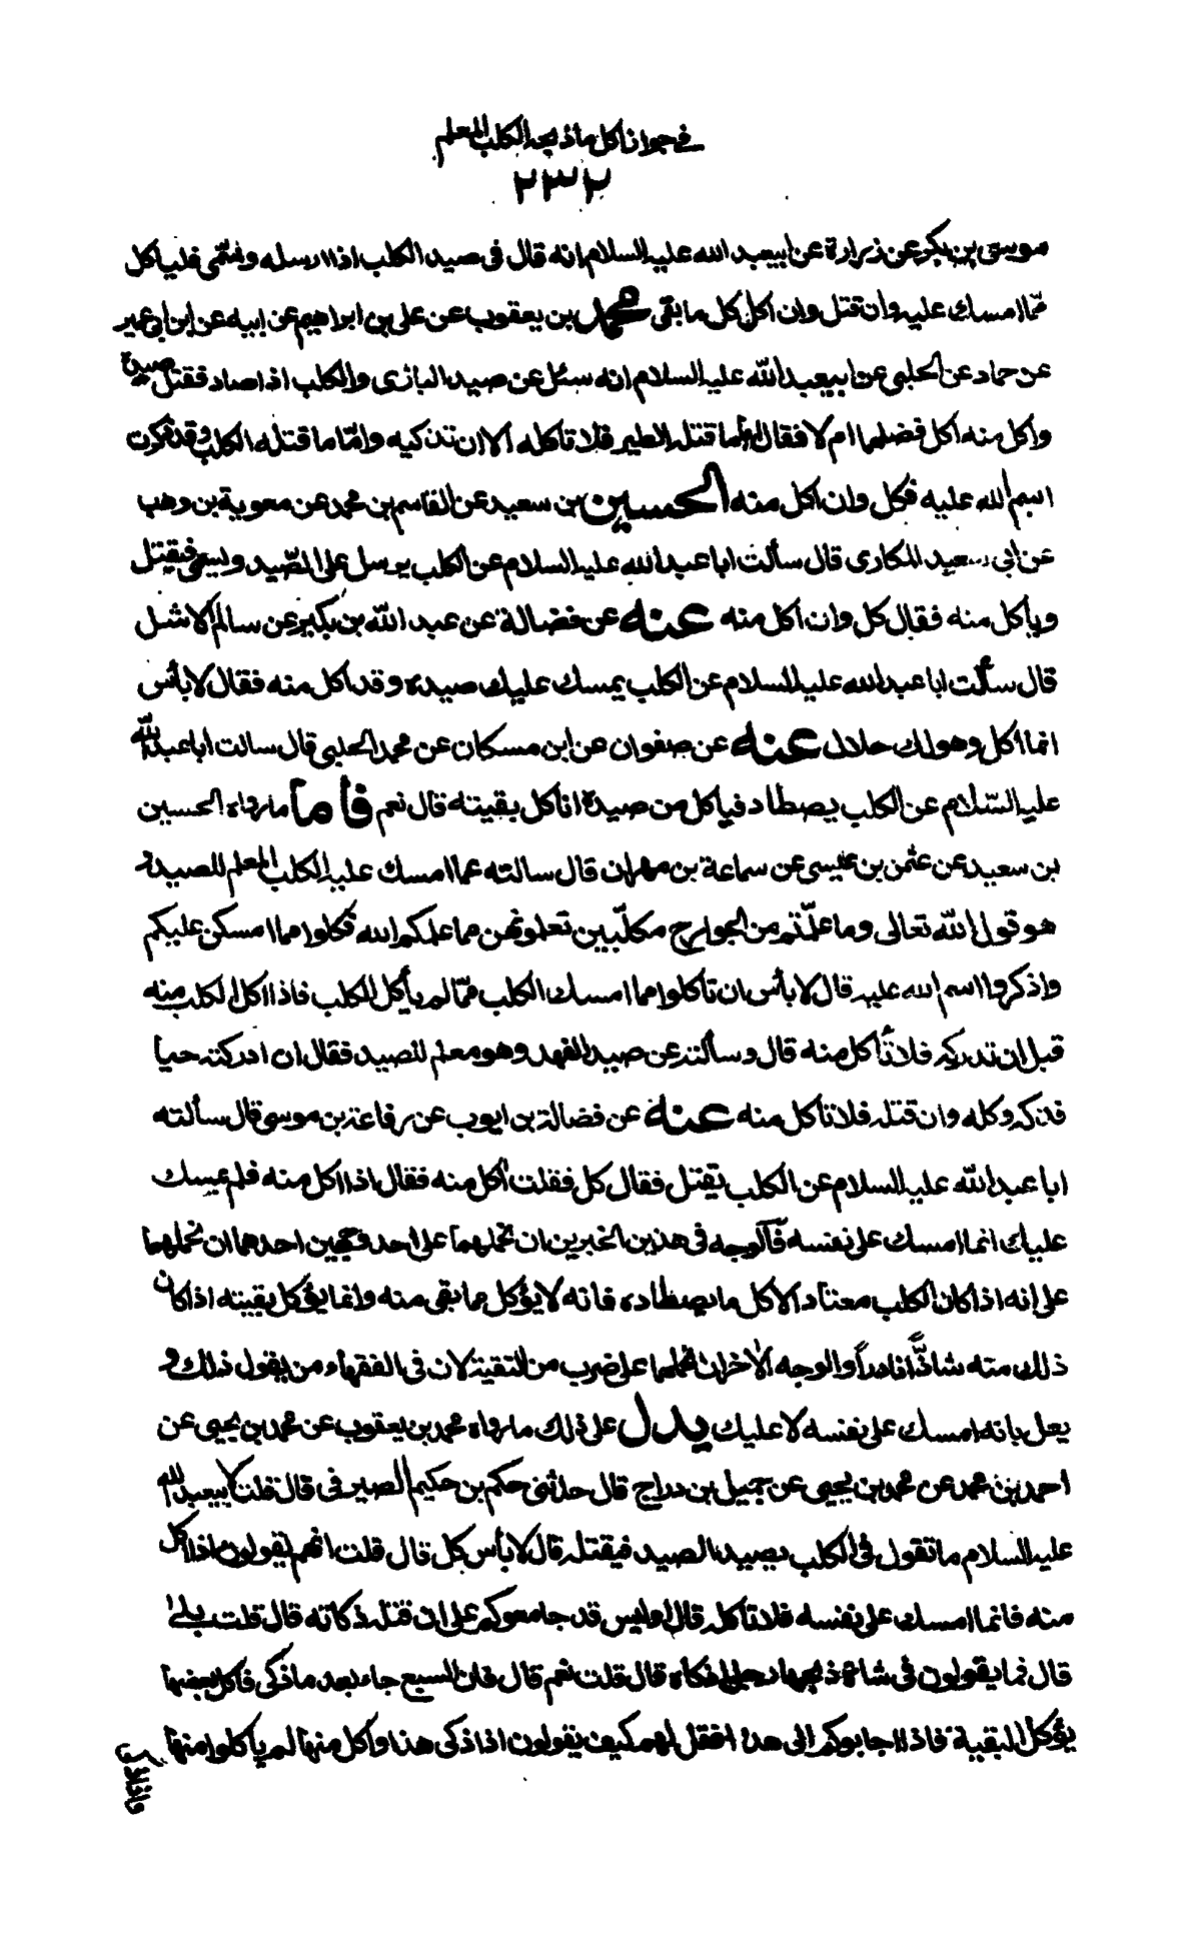 في جواز اكل ما ذبحه الكلب المعلم
٢٣٢
موسى بن بكر عن زرارة عن ابيعبد الله عليه السلام انه قال فى صيد الكلب اذا ارسله وسمّى فلياكل
ممّا امسك عليه وان قتل وان اكل كل ما بقى محمد بن يعقوب عن على بن ابراهيم عن ابيه عن ابن ابى عمير
عن حماد عن الحلبى عن ابيعبد الله عليه السلام انه سئل عن صيد البازى والكلب اذا صاد فقتل صيده
واكل منه اكل فضلهما ام لا فقال اما ما قتله الطير فلا تاكله الا ان تذكيه وامّا ما قتله الكلب وقد ذكرت
اسم الله عليه فكل وان اكل منه الحسين بن سعيد عن القاسم بن محمد عن معوية بن وهب
عن ابى سعيد المكارى قال سألت ابا عبد الله عليه السلام عن الكلب يرسل على الصّيد ويسمى فيقتل
وياكل منه فقال كل وان اكل منه عنه عن فضالة عن عبد الله بن بكير عن سالم الاشل
قال سألت ابا عبد الله عليه السلام عن الكلب يمسك عليك صيده وقد اكل منه فقال لا بأس
انما اكل وهو لك حلال عنه عن صفوان عن ابن مسكان عن محمد الحلبى قال سالت ابا عبد الله
عليه السّلام عن الكلب يصطاد فياكل من صيده اناكل بقيته قال نعم فأما ما رواه الحسين
بن سعيد عن عثمن بن عيسى عن سماعة بن مهران قال سالته عما امسك عليه الكلب المعلم للصيد و
هو قول الله تعالى وما علّمتم من الجوارح مكلّبين تعلمونهن مما علمكم الله فكلوا مما امسكن عليكم
واذكروا اسم الله عليه قال لا بأس ان تاكلوا مما امسك الكلب ممّا لم يأكل الكلب فاذا اكل الكلب منه
قبل ان تدركه فلا تأكل منه قال وسألته عن صيد الفهد وهو معلم للصيد فقال ان ادركته حيا
فذكه وكله وان قتله فلا تاكل منه عنه عن فضالة بن ايوب عن رفاعة بن موسى قال سألته
ابا عبد الله عليه السلام عن الكلب يقتل فقال كل فقلت اكل منه فقال اذا اكل منه فلم يمسك
عليك انما امسك على نفسه فآلوجه فى هذين الخبرين ان نحملهما على احد وجهين احدهما ان نحملهما
على انه اذا كان الكلب معتاد الاكل ما يصطاده فانه لا يؤكل مما بقى منه وانما يؤكل بقيته اذا كان
ذلك منه شاذّا نادراً والوجه الاخر ان نحملهما على ضرب من التقية لان فى الفقهاء من يقول ذلك و
يعل بانه امسك على نفسه لا عليك يدل على ذلك ما رواه محمد بن يعقوب عن محمد بن يحيى عن
احمد بن محمد عن محمد بن يحيى عن جميل بن دراج قال حدثنى حكم بن حكيم الصيرفى قال قلت لابيعبد الله
عليه السلام ما تقول فى الكلب يصيد الصيد فيقتله قال لا بأس كل قال قلت انهم يقولون اذا اكل
منه فانما امسك على نفسه فلا تاكله قال اوليس قد جامعوكم على ان قتله ذكاته قال قلت بلى
قال فما يقولون فى شاة ذبحها رجل اذكاه قال قلت نعم قال فان السبع جاء بعد ما ذكى فاكل بعضها
يؤكل البقية فاذا اجابوكم الى هذا فقل لهم كيف يقولون اذا ذكى هذا واكل منها لم ياكلوا منها